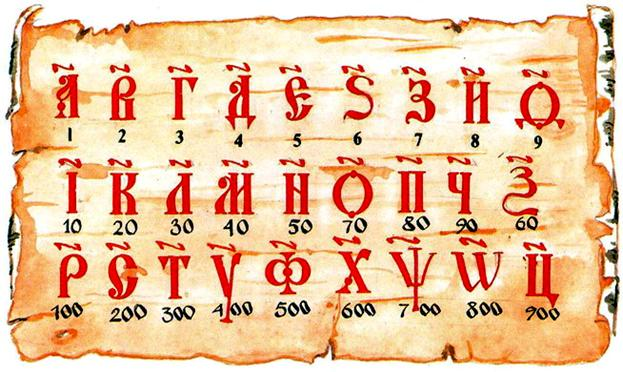 А҃ В҃ Г҃ Д҃ Є҃ Ѕ҃ З҃ И҃ Ѳ҃
1 2 3 4 5 6 7 8 9
І҃ К҃ Л҃ М҃ Н҃ О҃ П҃ Ч҃ Ѯ҃
10 20 30 40 50 70 80 90 60
Р҃ С҃ Т҃ Ѵ҃ Ф҃ Х҃ Ѱ҃ Ѡ҃ Ц҃
100 200 300 400 500 600 700 800 900